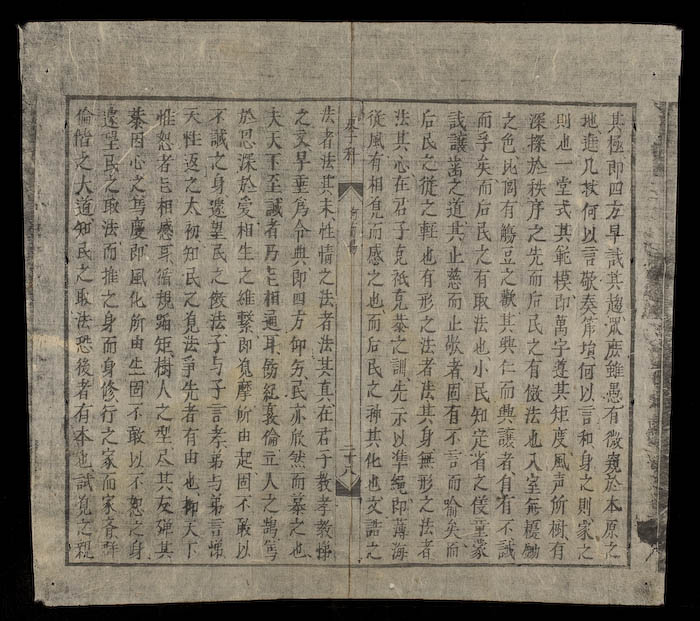 其極即四方早試其趨眾庶雖愚有微窺於本原之
地進几其何以言敬奏箎塤何以言和身之則家之
則也一堂式其範模即萬宇遵其矩度風聲所樹有
深探於秩序之先而后民之有倣法也入室無擾鋤
之色比閭有觴豆之歡其興仁而興讓者有有不誠
而孚矣而后民之有取法也小民知定省之儀童蒙
試讓畜之道其止慈而止敬者固有不言而喻矣而
后民之從之軒也有形之法者法其身無形之法者
法其心在君子克祗克恭之訓先示以準繩即薄海
從風有相覓而感之也而后民之神其化也文誥之
二十八
法者法其末性情之法者法其真在君子教孝教悌
之文早垂為令典即四方仰多民亦欣然而慕之也
大天下至誠者乃克相通耳飭紀敦倫立人之鵠篤
於思深於愛相生之維繫即覓摩所由起固不敢以
不誠之身遽望民之倣法子與子言孝弟與弟言悌
天性返之太初知民之覓法爭先者有由也抑天下
惟恕者克相感耳循規蹈矩樹人之型尽其友殫其
恭因心之篤慶即風化所由生固不敢以不恕之身
遽望民之取法而推之身而身修行之家而家齊群
倫偕之大道知民之取法恐後者有本也試覓之親